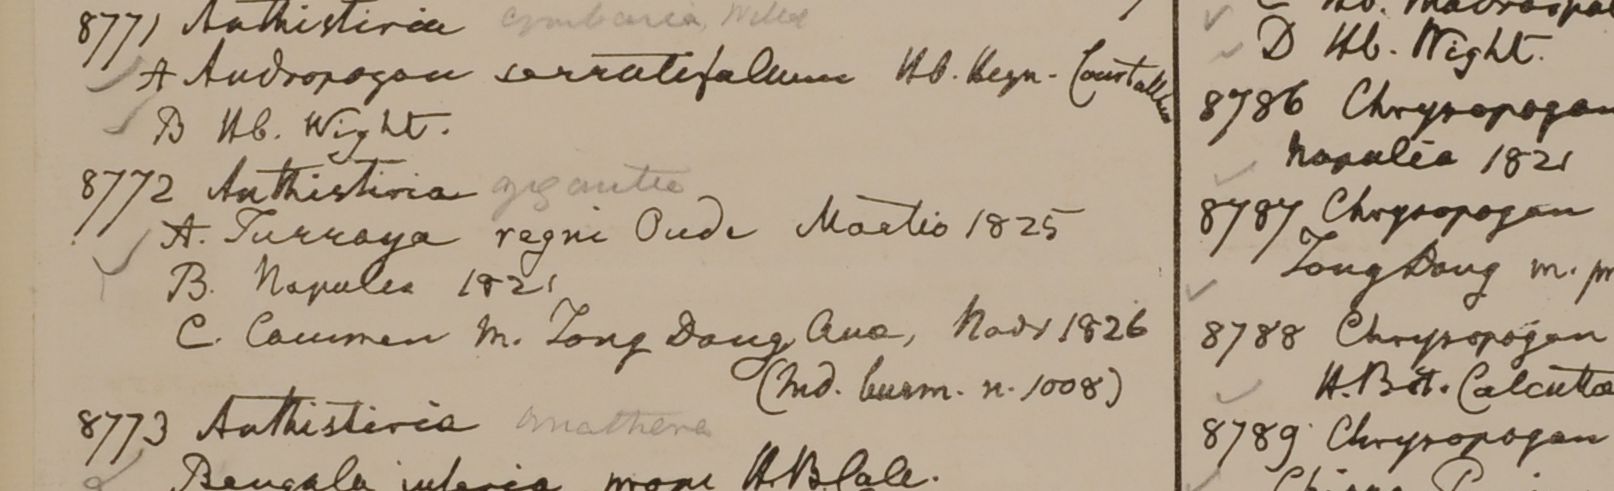 8771 Anthistiria cymbaria Willd
A Andropogon serratifolium Hb. Heyn-Courtallum
B Hb. Wight.
8772 Anthistiria gigantea
A. Turraya regni Oude Martio 1825
B. Napulea 1821
C. Caumen m. Tong Dong Ava, Novr 1826
(Md. burm. n. 1008)
8773 Anthistiria anathera
Bengala inferia prope H.B.Calc.
D Hb. Wight.
8786 Chrysopogon
Napulia 1821
8787 Chrysopogon
Tong Dong m.
8788 Chrysopogon
H. Bot. Calcutta
8789 Chrysopogon